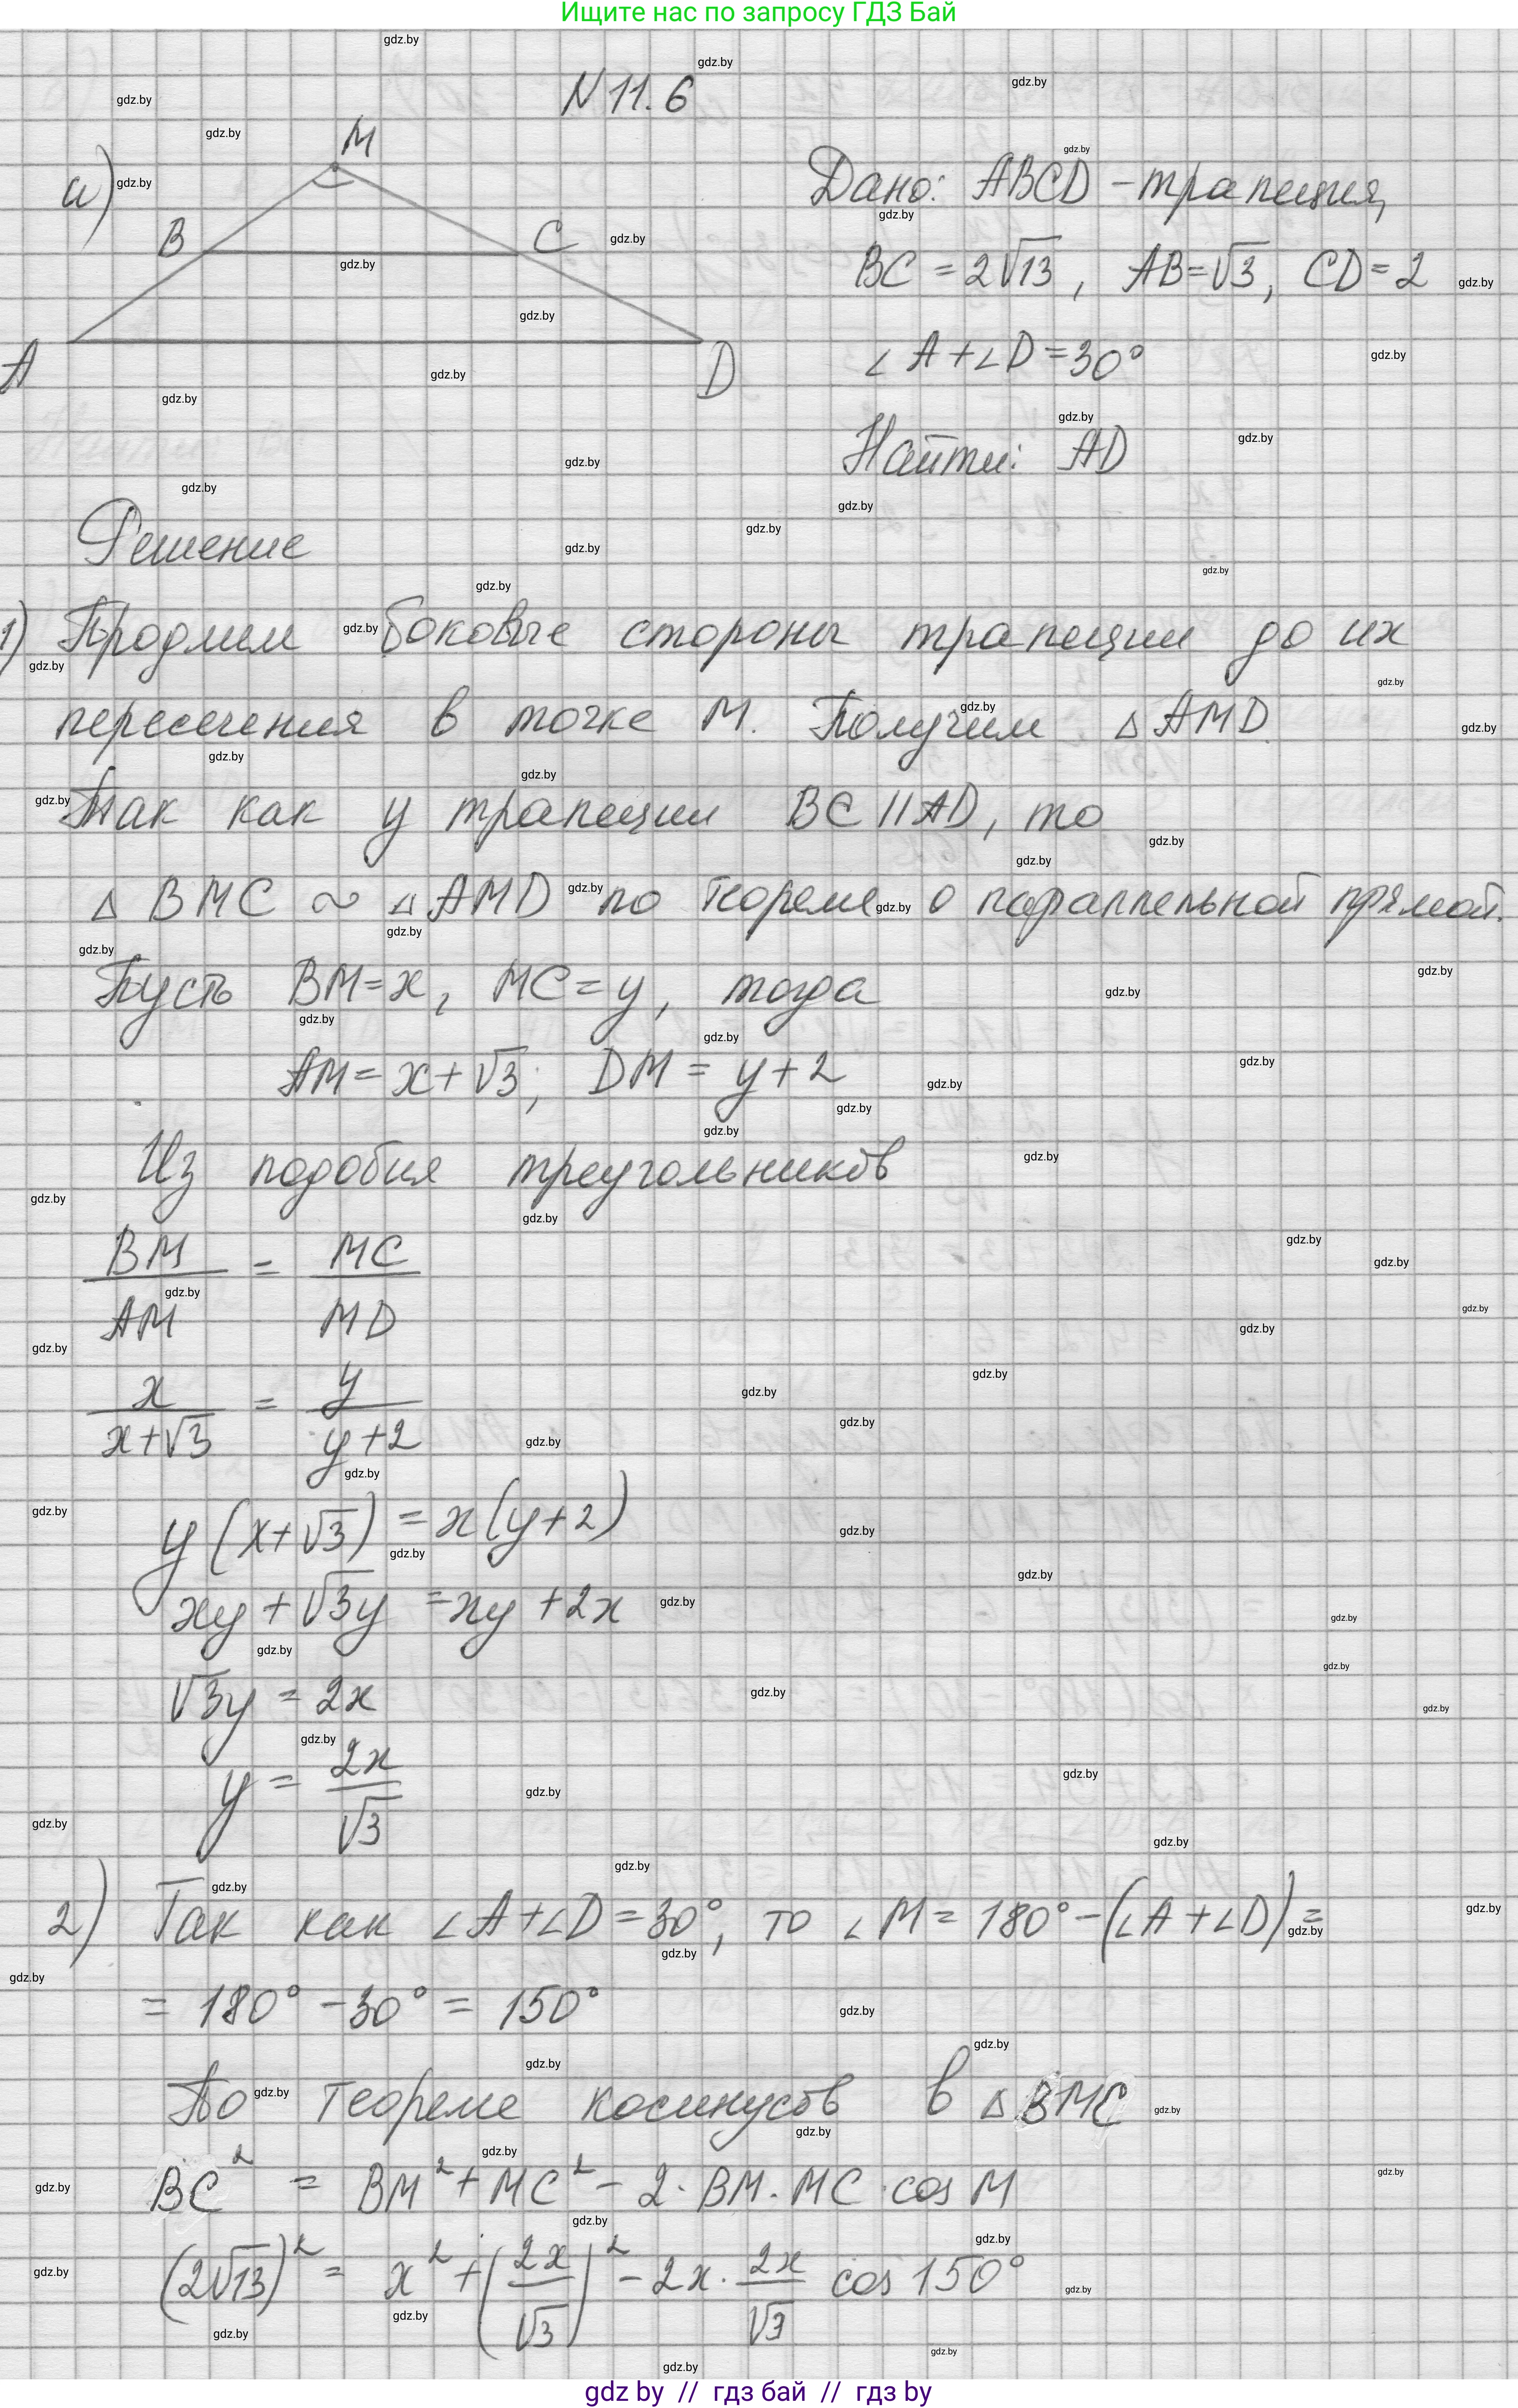 Ищите нас по запросу ГДЗ Бай
N 11.6
а)
M
B
C
A
D
Дано: ABCD - трапеция,
BC = 2√13, AB = √3, CD = 2
∠A + ∠D = 30°
Найти: AD
Решение
1) Продлим боковые стороны трапеции до их
пересечения в точке M. Получим △AMD
Так как у трапеции BC || AD, то
△BMC ~ △AMD по теореме о параллельной прямой.
Пусть BM = x, MC = y, тогда
AM = x + √3; DM = y + 2
Из подобия треугольников
BM/AM = MC/MD
x/(x+√3) = y/(y+2)
y(x+√3) = x(y+2)
xy + √3y = xy + 2x
√3y = 2x
y = 2x/√3
2) Так как ∠A + ∠D = 30°, то ∠M = 180° - (∠A + ∠D) =
= 180° - 30° = 150°
По теореме косинусов в △BMC
BC² = BM² + MC² - 2·BM·MC·cos M
(2√13)² = x² + (2x/√3)² - 2x · 2x/√3 cos 150°
gdz by // гдз бай // гдз by